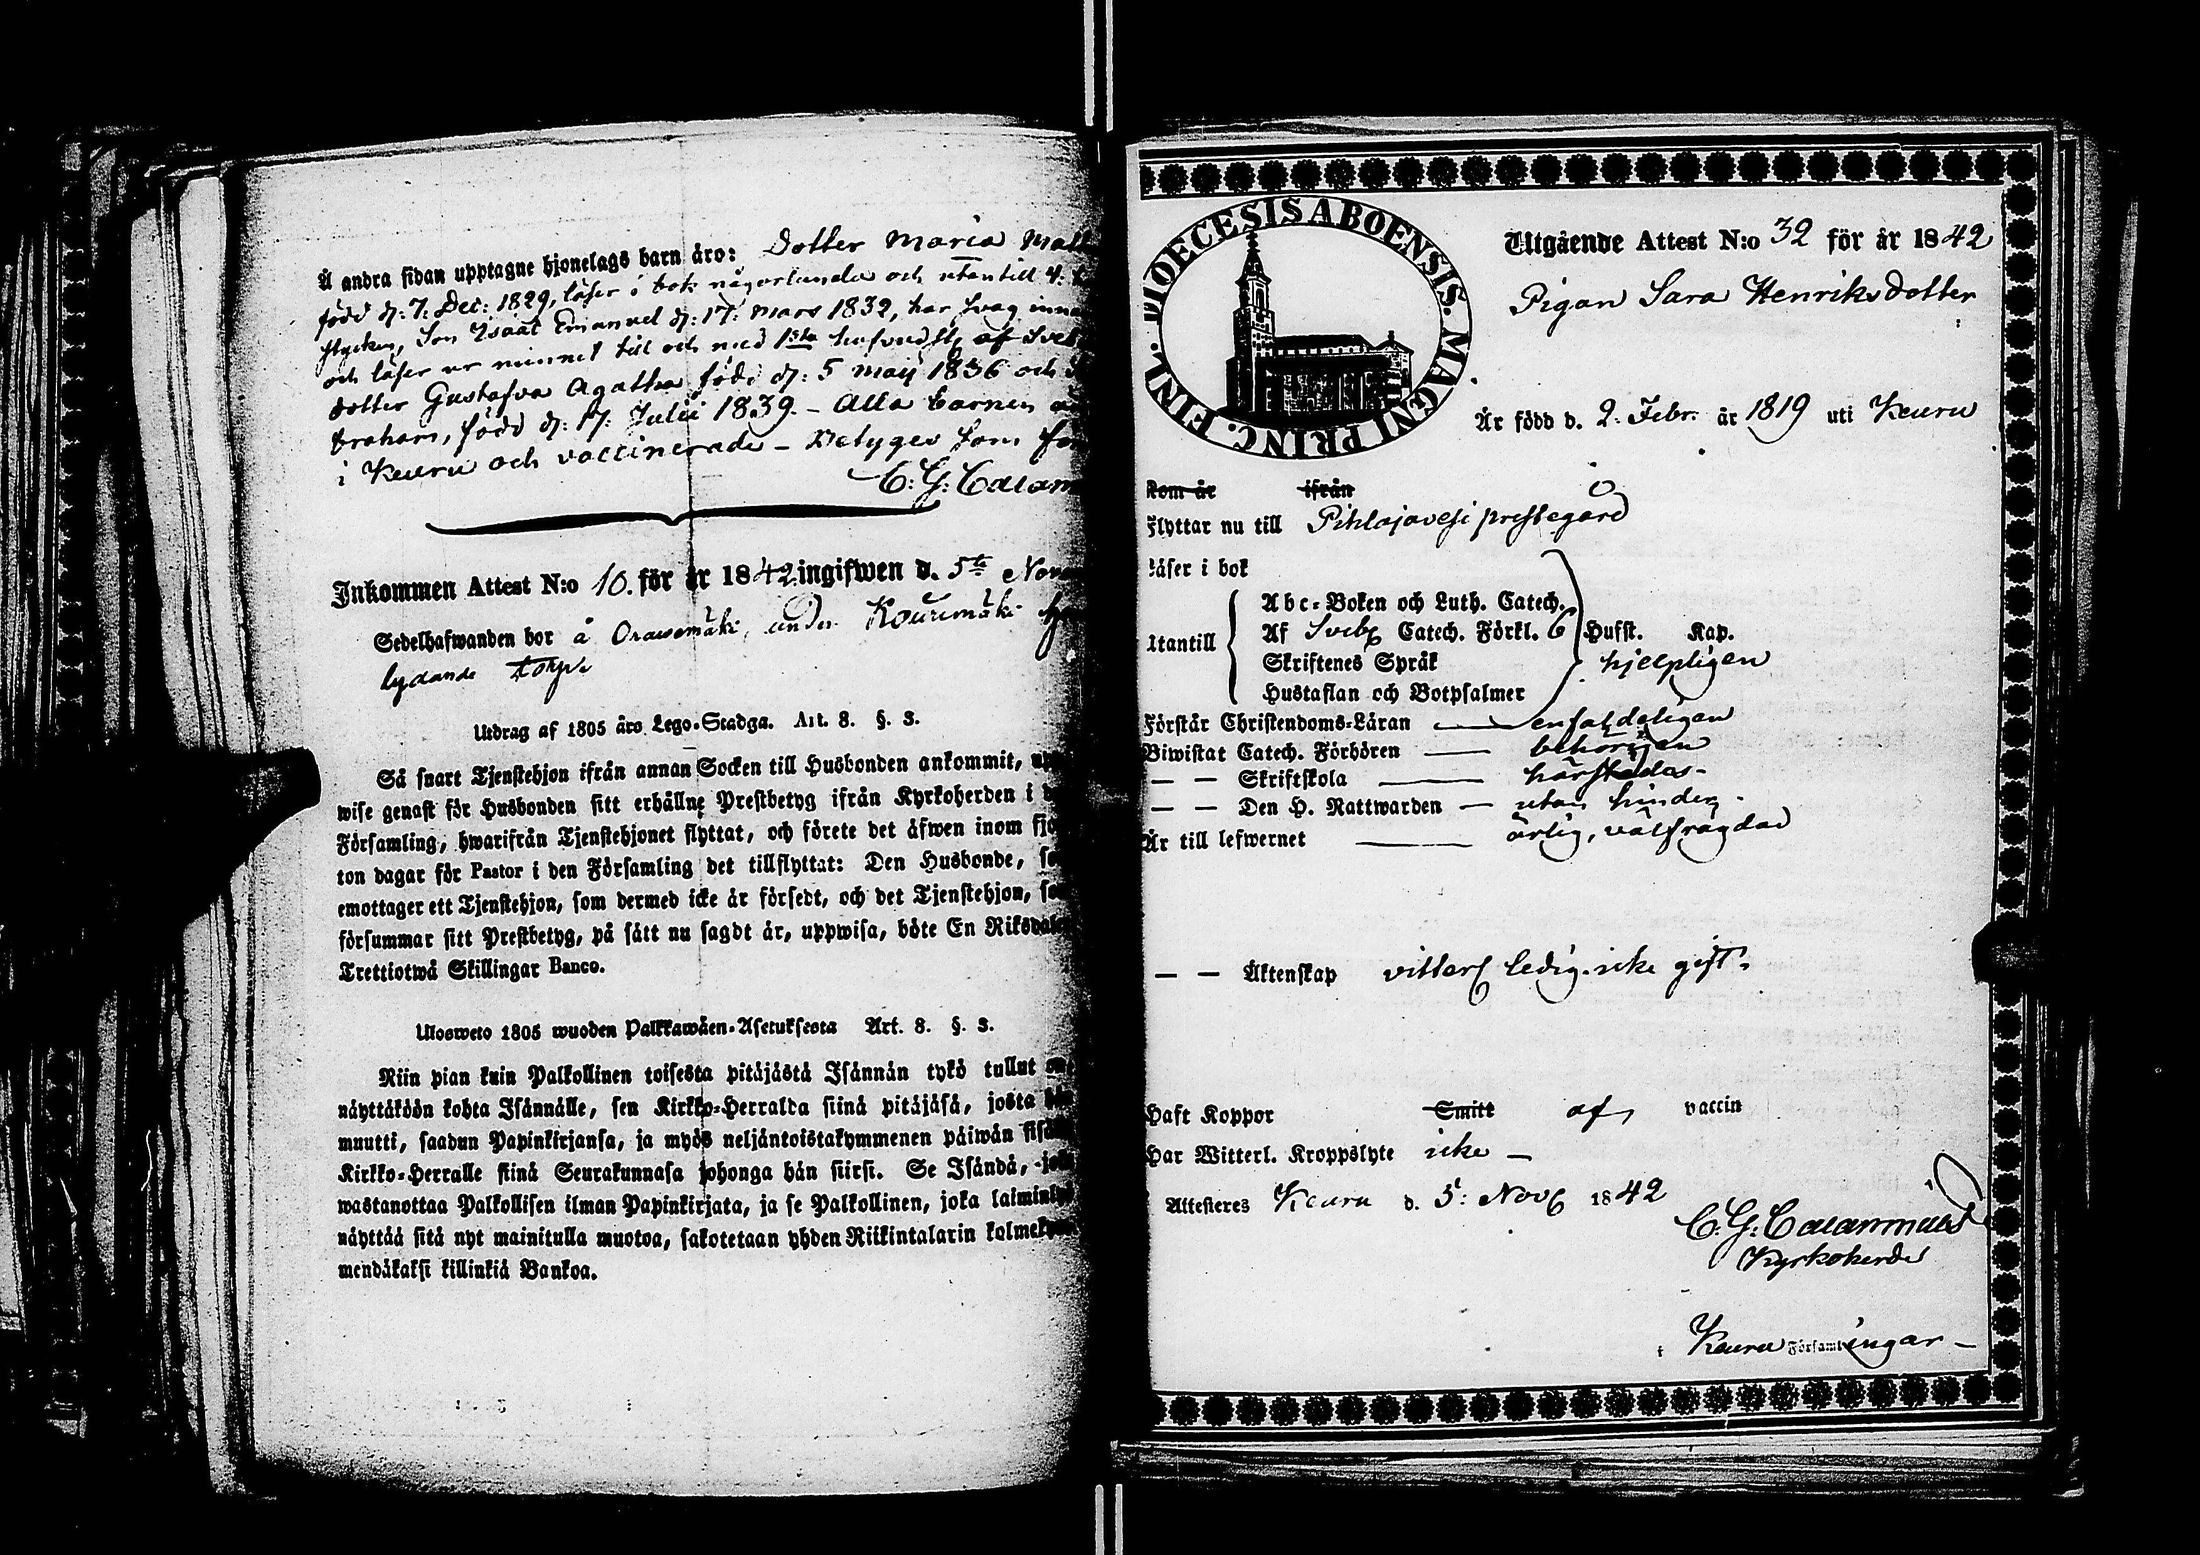 Å andra sidan upptagne hjonelags barn äro: Dotter Maria
född d: 7: Dec: 1829, läser i bok någorlunda och utantill 4:
stycken, Son Isaac Emanuel d: 17: Mars 1832, har svag
och läser ur minnet till och med 1sta hufvudst: af Sveb
dotter Gustafva Agatha född d: 5 Maij 1836 och
Abraham, född d: 17: Julii 1839. - Alla barnen
i Keuru och vaccinerade - Betyges som
C: G: Calam
Inkommen Attest N:o 10. för år 1842 ingifwen d. 5te Nov
Sedelhafwanden bor å under Kourumäki
lydande torp.
Utdrag af 1805 års Lego-Stadga. Art. 8. §. 3.
Så snart Tjenstehjon ifrån annan Socken till Husbonden ankommit,
wise genast för Husbonden sitt erhållne Prestbetyg ifrån Kyrkoherden i
Församling, hwarifrån Tjenstehjonet flyttat, och förete det äfwen inom fjo
ton dagar för Pastor i den Församling det tillflyttat: Den Husbonde,
emottager ett Tjenstehjon, som dermed icke är försedt, och det Tjenstehjon,
försummar sitt Prestbetyg, på sätt nu sagdt är, uppwisa, böte En Riksdaler
Trettiotwå Skillingar Banco.
Ulosweto 1805 wuoden Palkkawäen-Asetuksesta Art. 8. §. 3.
Niin pian kuin Palkollinen toisesta pitäjästä Isännän tykö tullut on,
näyttäköön kohta Isännälle, sen Kirkko-Herralta siinä pitäjäsä, josta hän
muutti, saadun Papinkirjansa, ja myös neljäntoistakymmenen päiwän sisä
Kirkko-Herralle siinä Seurakunnasa johonga hän siirsi. Se Isändä,
wastanottaa Palkollisen ilman Papinkirjata, ja se Palkollinen, joka laimin
näyttää sitä nyt mainitulla muotoa, sakotetaan yhden Riikintalarin kolmekym
mendäkaksi killinkiä Bankoa.
DIOECESIS ABOENSIS. MAGNI PRINC. FINL.
Utgående Attest N:o 32 för år 1842
Pigan Sara Henriksdotter
Är född d. 2. Febr. år 1819 uti Keuru
kom år ifrån
Flyttar nu till Pihlajavesi prestegård
Läser i bok
Abc-Boken och Luth. Catech.
Af Sveb: Catech. Förkl. 6 Hufst. Kap.
Utantill
Skriftenes Språk hjelpligen
Hustaflan och Botpsalmer
Förstår Christendoms-Läran enfaldeligen
Biwistat Catech. Förhören behörigen
— — Skriftskola härstädes -
— — Den H. Nattwarden — utan hinder -
Är till lefwernet ärlig, välfrägdad
— — Äktenskap vitterl: ledig. icke gift.
Haft Koppor Smitt af vaccin
Har Witterl. Kroppslyte icke —
Attesteres Keuru d. 5: Nov: 1842
C: G: Calamnius
Kyrkoherde
i Keuru Församlingar —